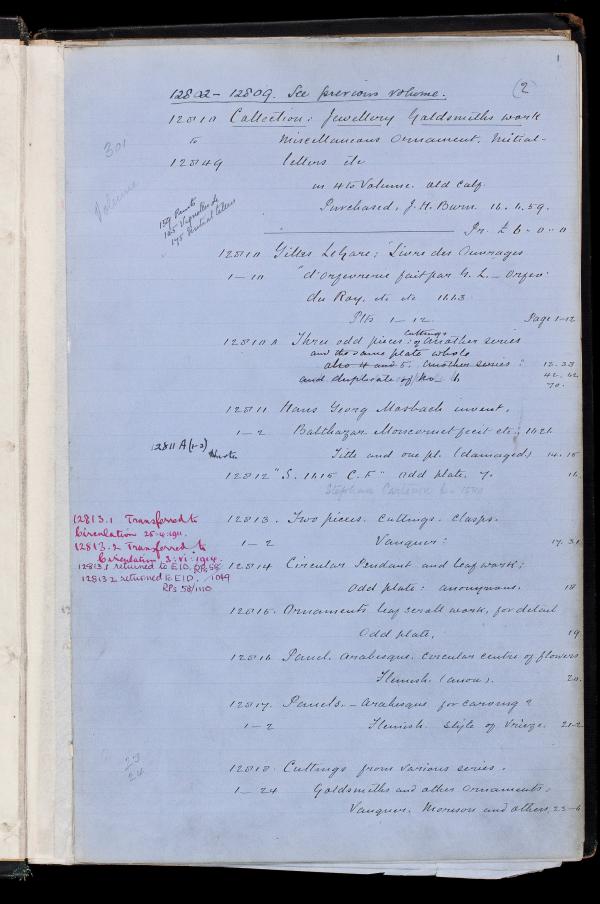 1
(2)
12802 - 12809. See previous volume.
12810 Collection: Jewellery Goldsmiths work
to miscellaneous Ornament. Initial-
12849 letters etc
301
Volume
in 4to Volume. old calf.
Purchased, J. H. Burn. 16. 6. 59.
159 Panels
125 Vignettes &
175 Initial letters
Pr. £6-0-0
12810 Gilles Légaré; "Livre des Ouvrages
1-10 "d'Orfevrerie fait par G. L. - Orfev:
du Roy, etc etc 1663
Pls 1-12. Page 1-12
12810 A Three odd pieces: cuttings of another series
and the same plate whole
also 4 and 5. another series: 12. 33
and duplicate of No 6 42. 62
70.
12811 Hans Georg Mosbach invent,
1-2 Balthazar Moncornet fecit etc; 1626
12811 A (1-2)
Title and one pl. (damaged) 14. 15
12812 "S. 1615 C. F" odd plate. 7. 16.
Stephan Carteron
12813.1 Transferred to
Circulation 25.4.1911.
12813.2 Transferred to
Circulation 3:vi:1914.
12813.1 returned to EID. RPs 58/1049
12813 2 returned to EID.
RPs 58/1110
12813. Two pieces. Cuttings. Clasps.
1-2 Vauquer: 17. 31
12814 Circular Pendant and leaf work;
Odd plate: anonymous. 18
12815. Ornaments, leaf scroll work, for detail
Odd plate. 19
12816 Panel. Arabesque. Circular centre of flowers
Flemish. (anon). 20.
12817. Panels. - Arabesque for carving?
1-2 Flemish. style of Vriese. 21-2
23
24
12818. Cuttings from various series.
1-24 Goldsmiths and other Ornaments.
Vauquer, Morison and others, 23-6